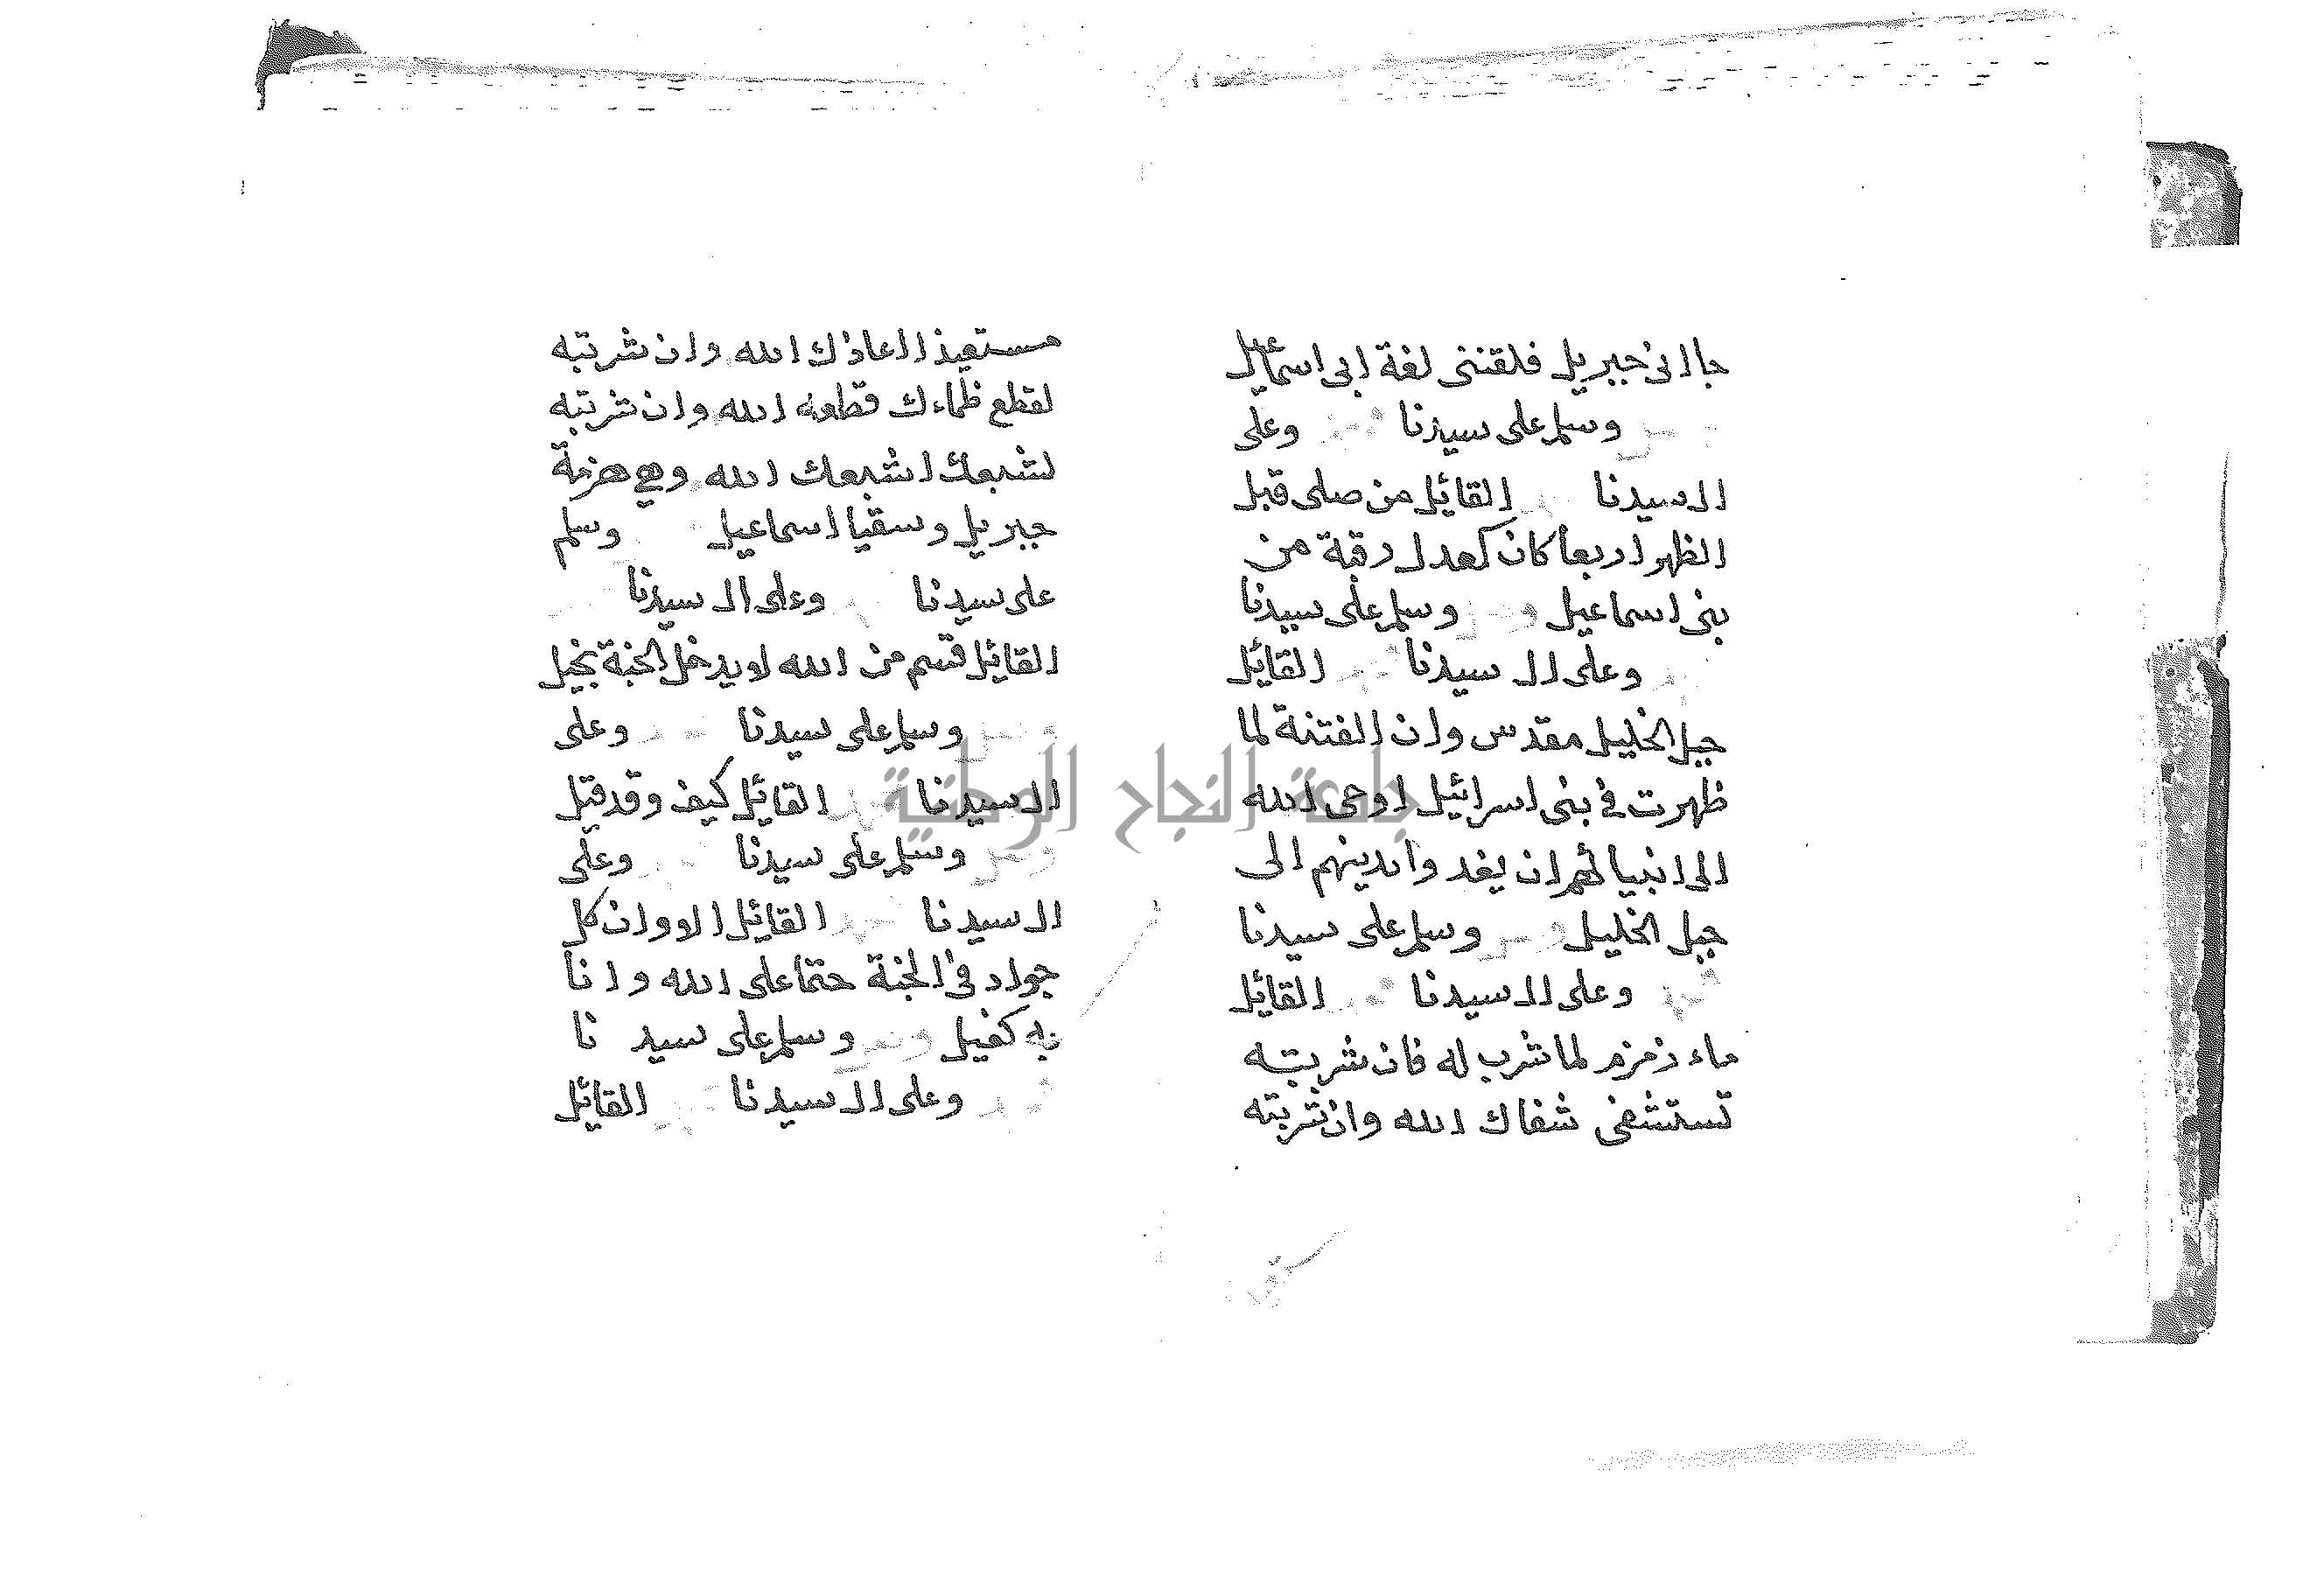 جاانى جبريل فلقننى لغة ابى اسماعيل
وسلم على سيدنا وعلى
ال سيدنا القائل من صلى قبل
الظهر اربعا كان كعدل رقبة من
بنى اسماعيل وسلم على سيدنا
وعلى ال سيدنا القائل
جبل الخليل مقدس وان الفتنة لما
ظهرت فى بنى اسرائيل اوحى الله
الى انبيائهم ان يفروا بدينهم الى
جبل الخليل وسلم على سيدنا
وعلى ال سيدنا القائل
ماء زمزم لما شرب له فان شربته
تستشفى شفاك الله وان شربته
مستعيذا اعاذك الله وان شربته
لقطع ظماءك قطعه الله وان شربته
لشبعك اشبعك الله وهى هزمة
جبريل وسقيا اسماعيل وسلم
على سيدنا وعلى ال سيدنا
القائل قسم من الله لا يدخل الجنة بخيل
وسلم على سيدنا وعلى
ال سيدنا القائل كيف وقد قيل
وسلم على سيدنا وعلى
ال سيدنا القائل الا وان كل
جواد فى الجنة حتما على الله وانا
به كفيل وسلم على سيدنا
وعلى ال سيدنا القائل
جامعة النجاح الوطنية